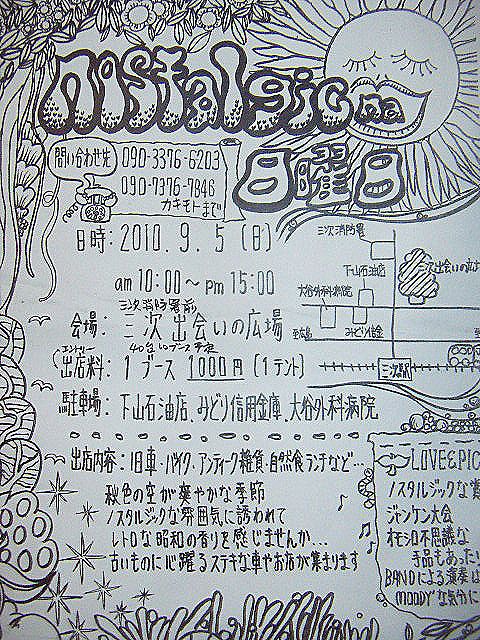 nostalgic na
日曜日
問い合わせ先
090-3376-6203
090-7376-7846
カキモトまで
日時：2010.9.5（日）
am 10:00～pm 15:00
三次消防署前
会場：三次出会いの広場
エントリー 40台 10ブース予定
出店料：1ブース 1000円（1テント）
駐車場：下山石油店、みどり信用金庫、大谷外科病院
三次消防署
下山石油店
三次出会いの広
大谷外科病院
至広島
みどり信金
三次駅
出店内容：旧車・バイク・アンティーク雑貨・自然食ランチなど…
秋色の空が爽やかな季節
ノスタルジックな雰囲気に誘われて
レトロな昭和の香りを感じませんか…
古いものに心躍るステキな車やお店が集まります
LOVE&PIC
ノスタルジックな
ジャンケン大会
オモシロ不思議な
手品もあった
BANDによる演奏は
MOODYな気分に